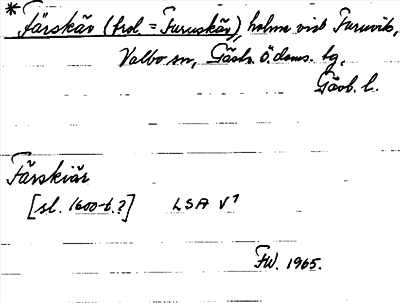 * Färskär (trol. = Furuskär), holme vid Furuvik,
Valbo sn, Gästr. Ö. doms. tg,
Gävb. l.
Färskiär
[sl. 1600-t.?] LSA V¹
FW. 1965.